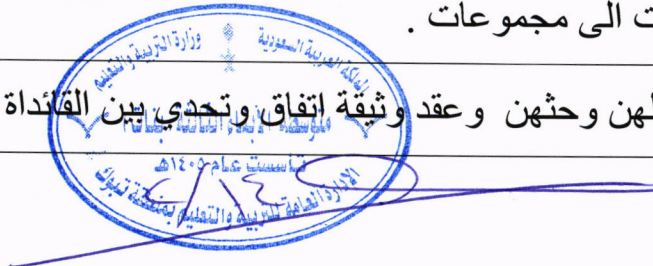 ت الى مجموعات .
لهن وحثهن وعقد وثيقة اتفاق وتحدي بين القائداة
المملكة العربية السعودية
وزارة التربية والتعليم
تأسست عام ١٤٠٥هـ
الإدارة العامة للتربية والتعليم بمنطقة تبوك